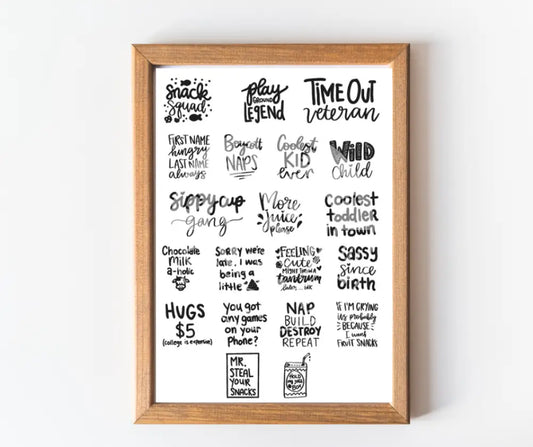 snack
squad
play
GROUND
LEGEND
TIME OUT
veteran
FIRST NAME
hungry
LAST NAME
always
Boycott
NAPS
Coolest
KID
ever
WILD
child
Sippy cup
gang
More
juice
please
Coolest
toddler
in town
Chocolate
Milk
a-holic
SORRY we're
late, I was
being a
little
FEELING
Cute
MIGHT THROW A
Tantrum
later... IDK
Sassy
since
birth
HUGS
$5
(college is expensive)
You got
any games
on your
Phone?
NAP
BUILD
DESTROY
REPEAT
IF I'M CRYING
It's probably
BECAUSE
I want
FRUIT SNACKS
MR.
STEAL
YOUR
SNACKS
HOLD
my juice
BOX